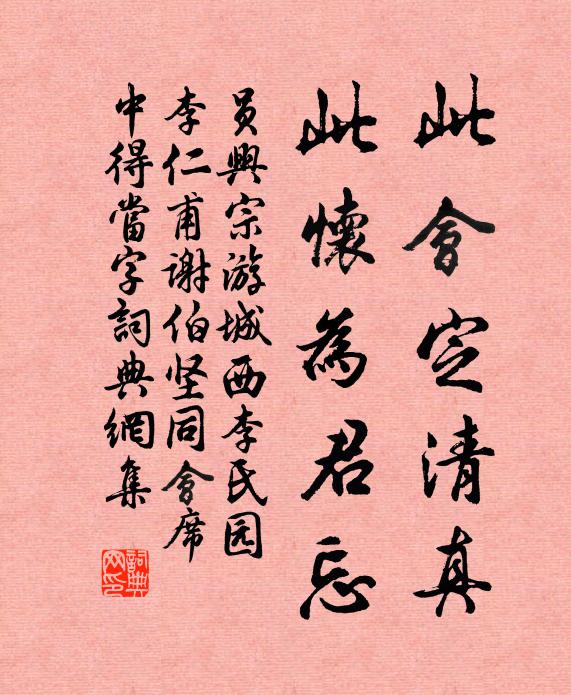 此會定清真
此懷為君忘
員興宗游城西李氏园
李仁甫谢伯坚同會席
中得當字詞典網集
詞典网印